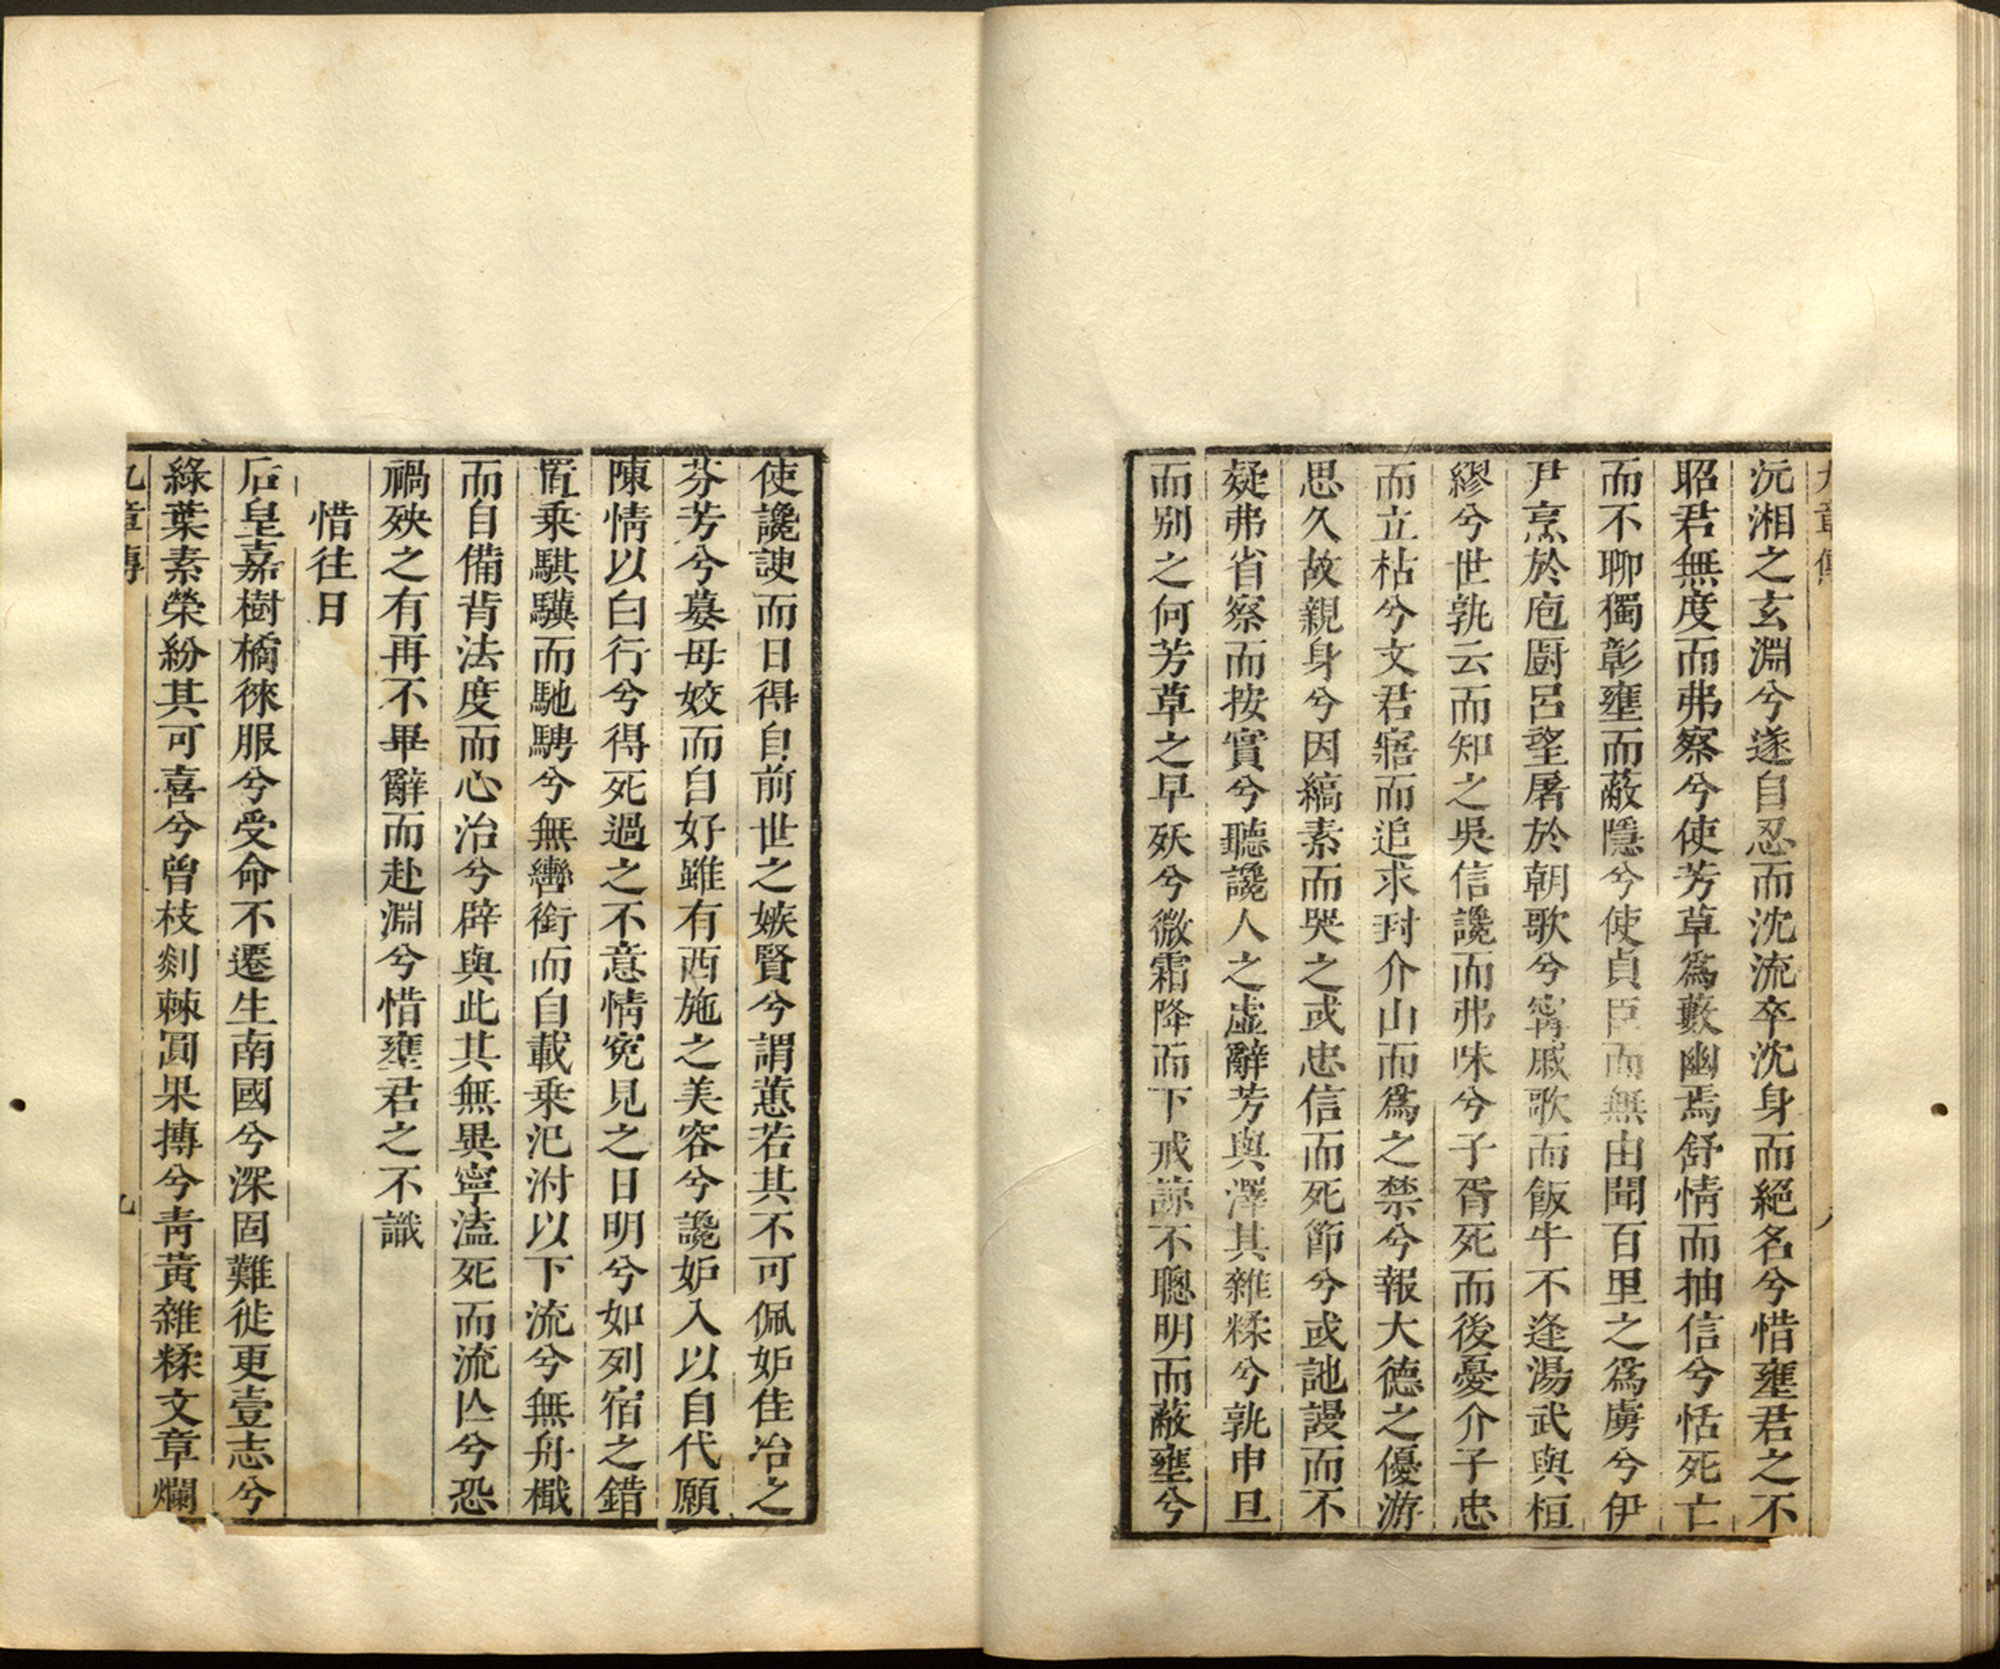 九章傳 八
沅湘之玄淵兮遂自忍而沈流卒沈身而絕名兮惜壅君之不
昭君無度而弗察兮使芳草爲藪幽焉舒情而抽信兮恬死亡
而不聊獨彰壅而蔽隱兮使貞臣而無由聞百里之爲虜兮伊
尹烹於庖廚呂望屠於朝歌兮甯戚歌而飯牛不逢湯武與桓
繆兮世孰云而知之吳信讒而弗味兮子胥死而後憂介子忠
而立枯兮文君寤而追求封介山而爲之禁兮報大德之優游
思久故親身兮因縞素而哭之或忠信而死節兮或訑謾而不
疑弗省察而按實兮聽讒人之虛辭芳與澤其雜糅兮孰申旦
而別之何芳草之早殀兮微霜降而下戒諒不聰明而蔽壅兮
使讒諛而日得自前世之嫉賢兮謂蕙若其不可佩妒佳冶之
芬芳兮嫫母姣而自好雖有西施之美容兮讒妒入以自代願
陳情以白行兮得死過之不意情寃見之日明兮如列宿之錯
置乘騏驥而馳騁兮無轡銜而自載乘氾泭以下流兮無舟檝
而自備背法度而心治兮辟與此其無異寧溘死而流亾兮恐
禍殃之有再不畢辭而赴淵兮惜壅君之不識
惜往日
后皇嘉樹橘徠服兮受命不遷生南國兮深固難徙更壹志兮
綠葉素榮紛其可喜兮曾枝剡棘圓果摶兮青黃雜糅文章爛
九章傳 九